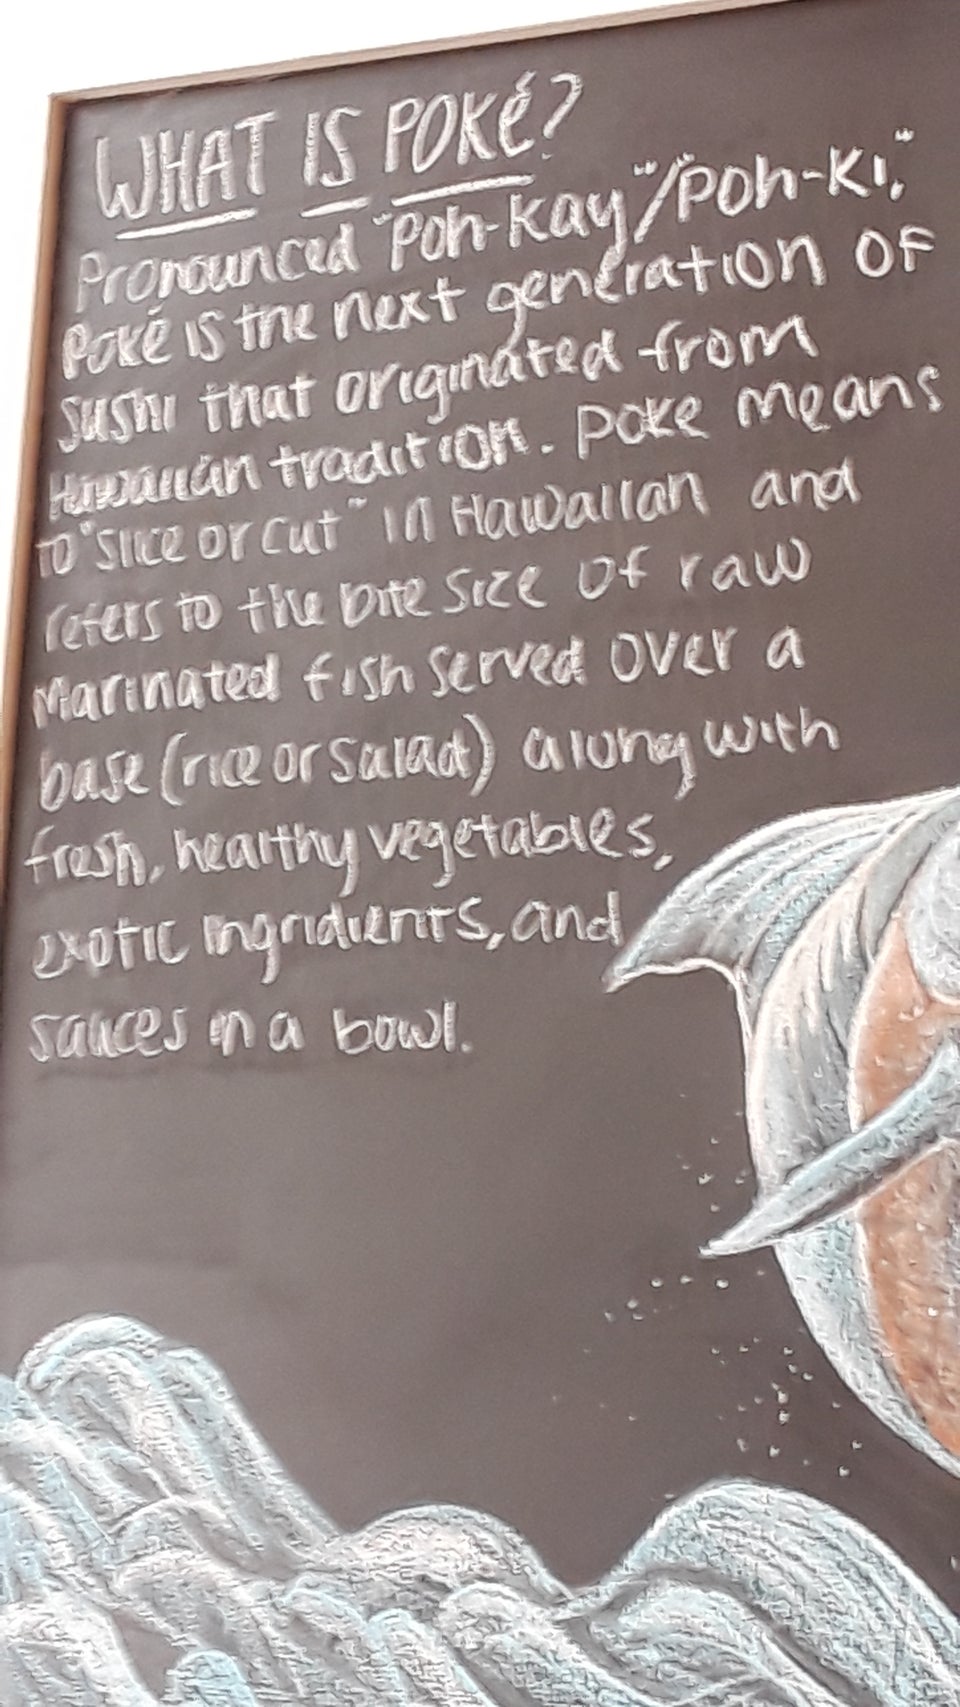 WHAT IS POKé?
Pronounced "Poh-Kay"/"Poh-Ki."
Poké is the next generation of
sushi that originated from
Hawaiian tradition. Poke means
to "slice or cut" in Hawaiian and
refers to the bite size of raw
marinated fish served over a
base (rice or salad) along with
fresh, healthy vegetables,
exotic ingridients, and
sauces in a bowl.